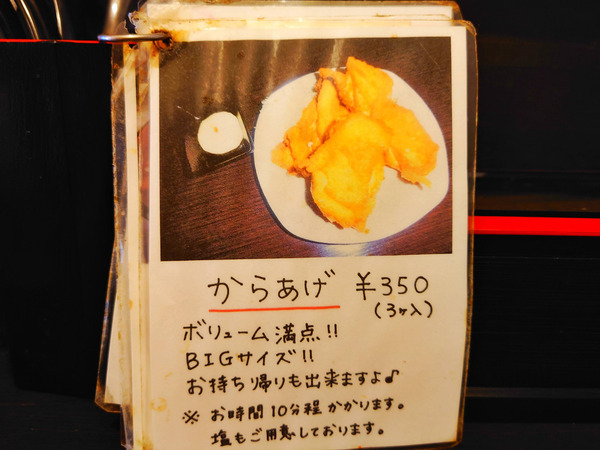 からあげ ¥350
(3ヶ入)
ボリューム満点!!
BIGサイズ!!
お持ち帰りも出来ますよ♪
※ お時間10分程かかります。
塩もご用意しております。